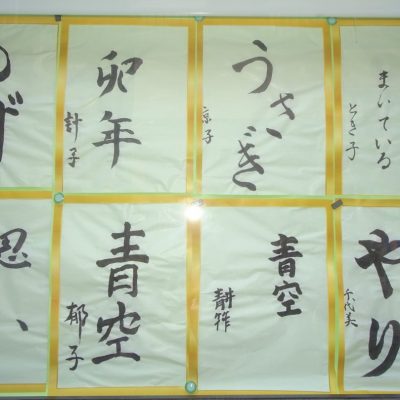 まいている
とき子
うさぎ
京子
卯年
計子
げ
やり
千代美
青空
青空
郁子
思い